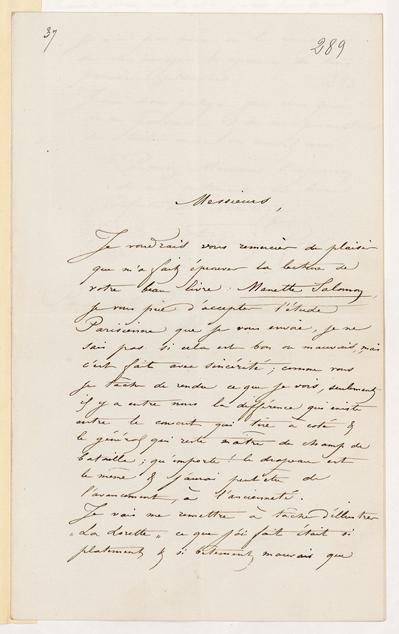 37
289
Messieurs,
Je voudrais vous remercier du plaisir
que m'a fait éprouver la lecture de
votre beau livre : Manette Salomon,
je vous prie d'accepter l'étude
Parisienne que je vous envoie, je ne
sais pas si cela est bon ou mauvais, mais
c'est fait avec sincérité ; comme vous
je tâche de rendre ce que je vois, seulement
il y a entre nous la différence qui existe
entre le conscrit qui tire à côté &
le général qui reste maître du champ de
bataille ; qu'importe ! le drapeau est
le même & j'aurai peut être de
l'avancement, à l'ancienneté.
Je vais me remettre à tâcher d'illustrer
"La Lorette" ce que j'ai fait était si
platement & si bêtement mauvais que